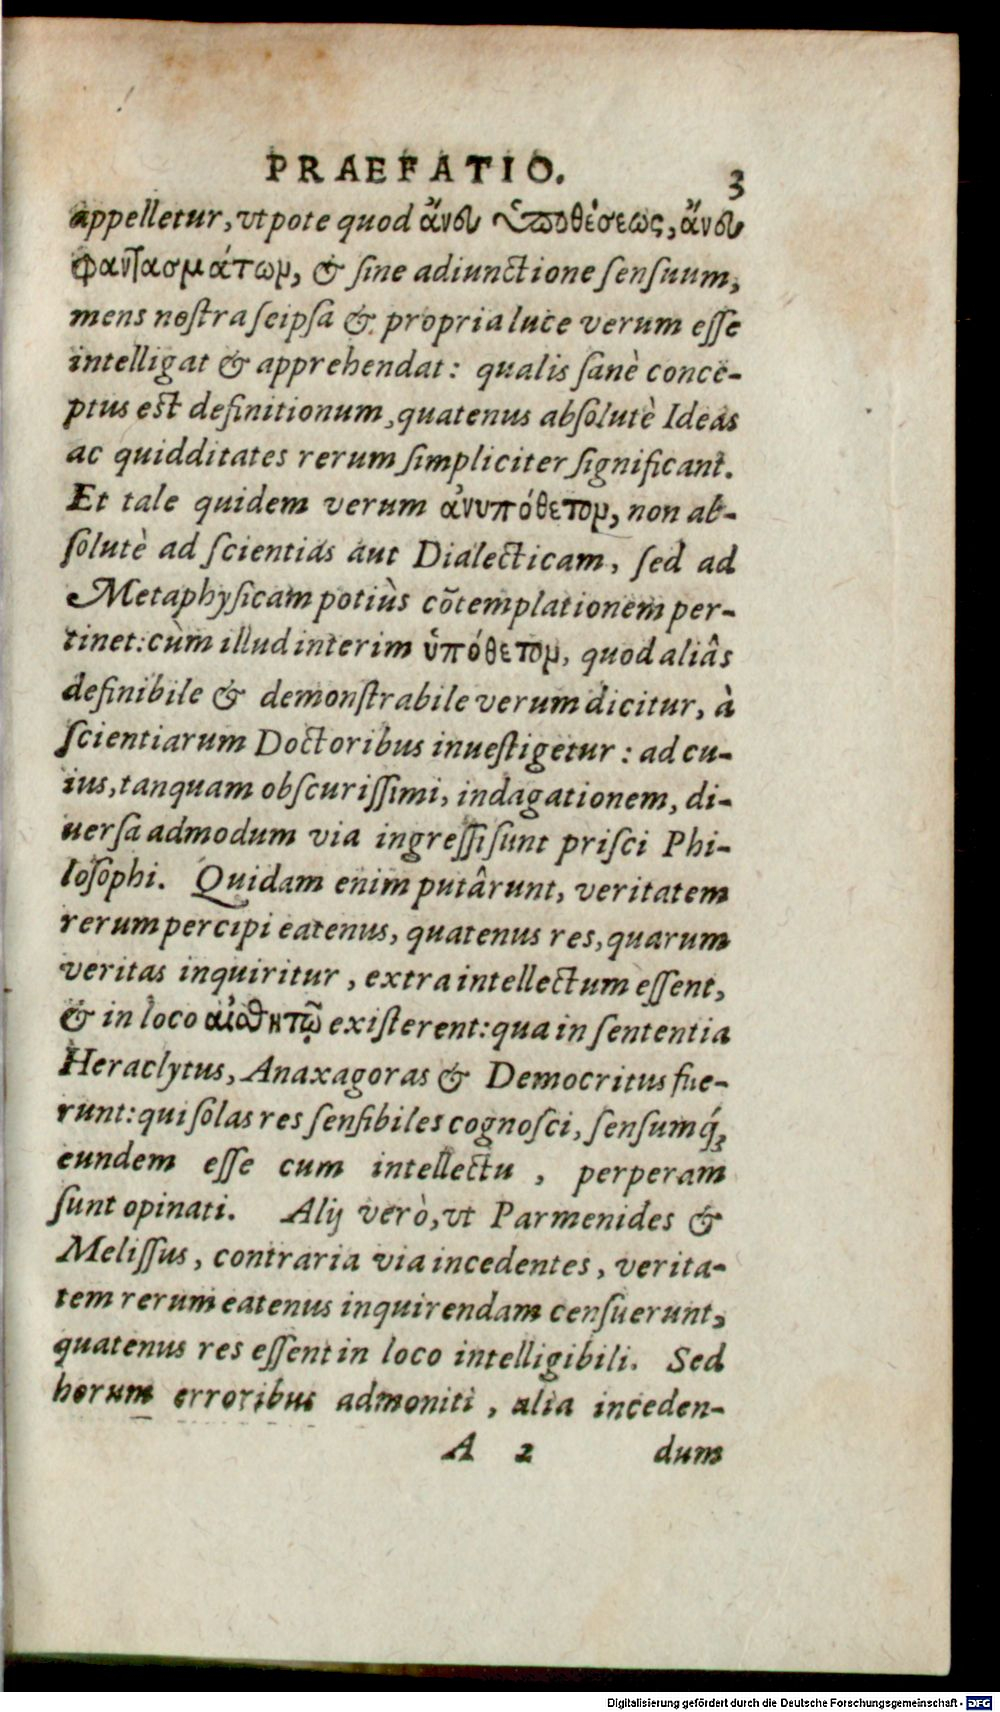 PRAEFATIO. 3
appelletur, vtpote quod ἄνευ ὑποθέσεως, ἄνευ
φαντασμάτων, & sine adiunctione sensuum,
mens nostra seipsa & propria luce verum esse
intelligat & apprehendat: qualis sanè conce-
ptus est definitionum, quatenus absolutè Ideas
ac quidditates rerum simpliciter significant.
Et tale quidem verum ἀνυπόθετον, non ab-
solutè ad scientias aut Dialecticam, sed ad
Metaphysicam potiùs cõtemplationem per-
tinet: cùm illud interim ὑπόθετον, quod aliâs
definibile & demonstrabile verum dicitur, à
scientiarum Doctoribus inuestigetur: ad cu-
ius, tanquam obscurissimi, indagationem, di-
uersa admodum via ingressi sunt prisci Phi-
losophi. Quidam enim putârunt, veritatem
rerum percipi eatenus, quatenus res, quarum
veritas inquiritur, extra intellectum essent,
& in loco αἰσθητῷ existerent: qua in sententia
Heraclytus, Anaxagoras & Democritus fue-
runt: qui solas res sensibiles cognosci, sensumq́;
eundem esse cum intellectu, perperam
sunt opinati. Alij verò, vt Parmenides &
Melissus, contraria via incedentes, verita-
tem rerum eatenus inquirendam censuerunt,
quatenus res essent in loco intelligibili. Sed
horum erroribus admoniti, alia inceden-
A 2 dum
Digitalisierung gefördert durch die Deutsche Forschungsgemeinschaft - DFG